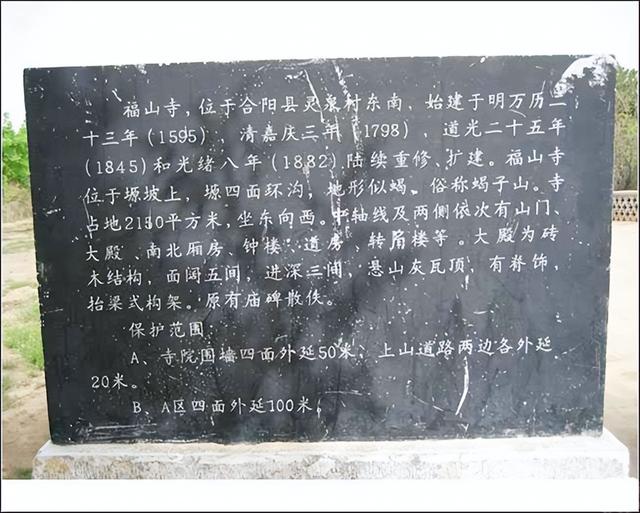 福山寺，位于合阳县灵泉村东南，始建于明万历二
十三年（1595），清嘉庆三年（1798），道光二十五年
（1845）和光绪八年（1882）陆续重修、扩建。福山寺
位于塬坡上，塬四面环沟，地形似蝎，俗称蝎子山。寺
占地2150平方米，坐东向西。中轴线及两侧依次有山门、
大殿、南北厢房、钟楼、道房、转角楼等。大殿为砖
木结构，面阔五间，进深三间，悬山灰瓦顶，有脊饰，
抬梁式构架。原有庙碑散佚。
保护范围：
A、寺院围墙四面外延50米，上山道路两边各外延
20米。
B、A区四面外延100米。